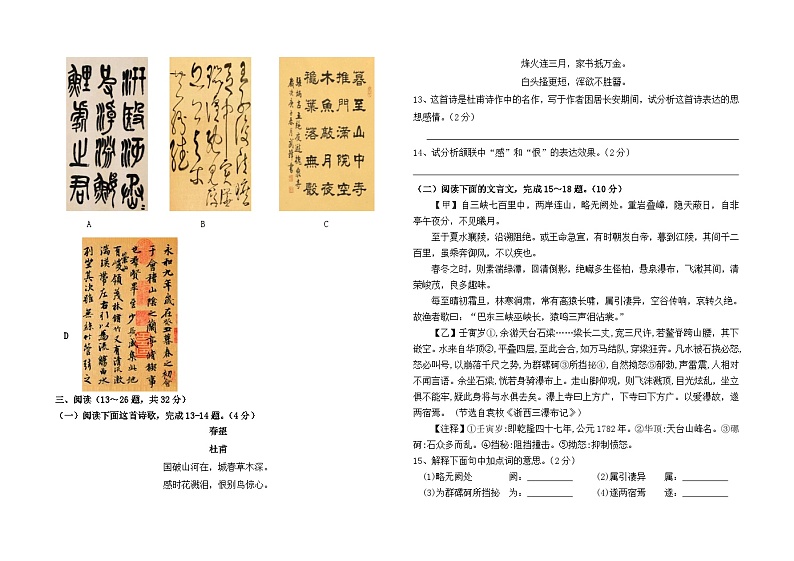 暮至山中寺
推門滿院空
木魚敲月夜
穐葉落無聲
A
B
C
永和九年歲在癸丑暮春之初會
于會稽山陰之蘭亭脩禊事
也群賢畢至少長咸集此地
有崇山峻領茂林脩竹又有清流激
湍暎帶左右引以為流觴曲水
列坐其次雖無絲竹管弦之
D
三、阅读（13～26 题，共 32 分）
（一）阅读下面这首诗歌，完成13-14 题。（4 分）
春望
杜甫
国破山河在，城春草木深。
感时花溅泪，恨别鸟惊心。
烽火连三月，家书抵万金。
白头搔更短，浑欲不胜簪。
13、这首诗是杜甫诗作中的名作，写于作者困居长安期间，试分析这首诗表达的思
想感情。（2 分）
14、试分析颔联中“感”和“恨”的表达效果。（2 分）
（二）阅读下面的文言文，完成 15～18 题。（10 分）
【甲】自三峡七百里中，两岸连山，略无阙处。重岩叠嶂，隐天蔽日，自非
亭午夜分，不见曦月。
至于夏水襄陵，沿溯阻绝。或王命急宣，有时朝发白帝，暮到江陵，其间千二
百里，虽乘奔御风，不以疾也。
春冬之时，则素湍绿潭，回清倒影，绝巘多生怪柏，悬泉瀑布，飞漱其间，清
荣峻茂，良多趣味。
每至晴初霜旦，林寒涧肃，常有高猿长啸，属引凄异，空谷传响，哀转久绝。
故渔者歌曰：“巴东三峡巫峡长，猿鸣三声泪沾裳。”
【乙】壬寅岁①，余游天台石梁……梁长二丈，宽三尺许，若鳌脊跨山腰，其下
嵌空。水来自华顶②，平叠四层，至此会合，如万马结队，穿梁狂奔。凡水被石挠必怒，
怒必叫号，以崩落千尺之势，为群磥砢③所挡扻④，自然拗怒⑤郁勃，声震雷霆，人相对
不闻言语。余坐石梁，恍若身骑瀑布上。走山脚仰观，则飞沫溅顶，目光炫乱，坐立
俱不能牢，疑此身将与水俱去矣。瀑上寺曰上方广，下寺曰下方广。以爱瀑故，遂
两宿焉。（节选自袁枚《浙西三瀑布记》）
【注释】①壬寅岁：即乾隆四十七年，公元 1782 年。②华顶：天台山峰名。③磥
砢：石众多而乱。④挡扻：阻挡撞击。⑤拗怒：抑制愤怒。
15、解释下面句中加点词的意思。（2 分）
(1)略无阙处 阙： (2)属引凄异 属：
(3)为群磥砢所挡扻 为： (4)遂两宿焉 遂：